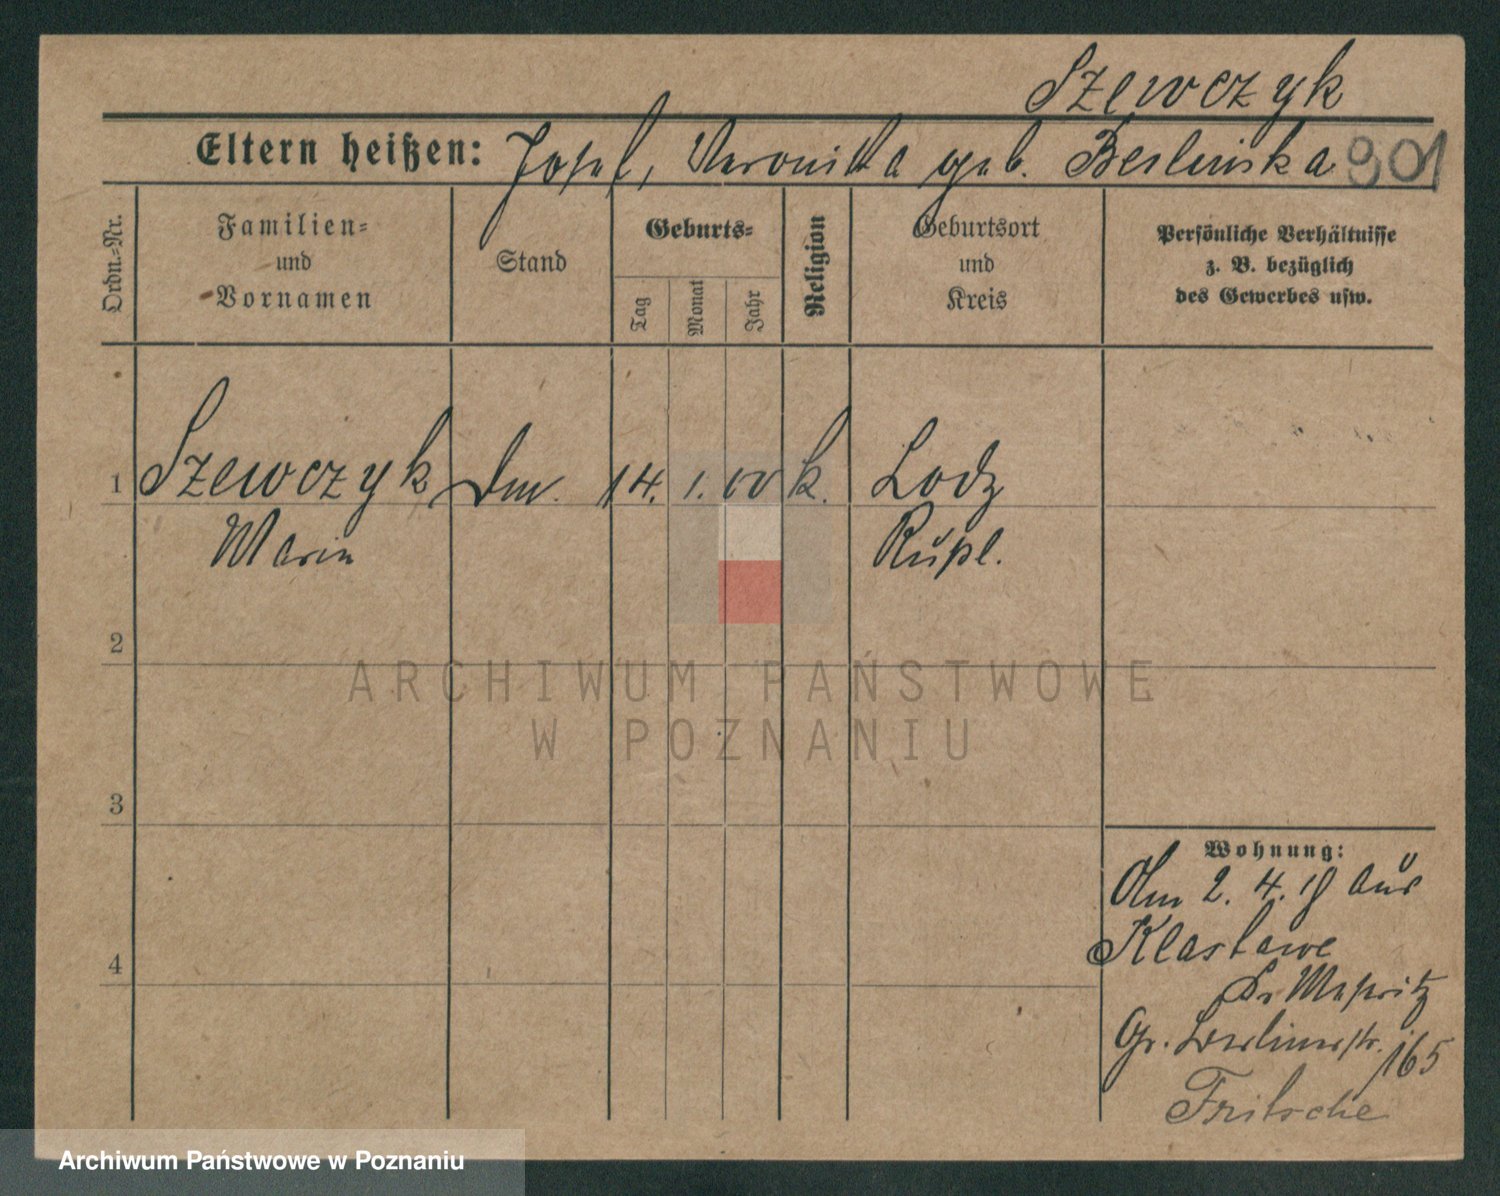 Szewczyk
Eltern heißen: Josef, Veronika geb. Berlinska 901
Ordn.-Nr.
Familien- und Vornamen
Stand
Geburts-
Tag
Monat
Jahr
Religion
Geburtsort und Kreis
Persönliche Verhältnisse z. B. bezüglich des Gewerbes usw.
1 Szewczyk 14. 1. 00 k. Lodz
Marie Rußl.
2
3
4
Wohnung:
2. 4. 18 aus
Klastawe
Kr Meseritz
Gr. Berlinerstr. 165
Fritsche
ARCHIWUM PAŃSTWOWE
W POZNANIU
Archiwum Państwowe w Poznaniu